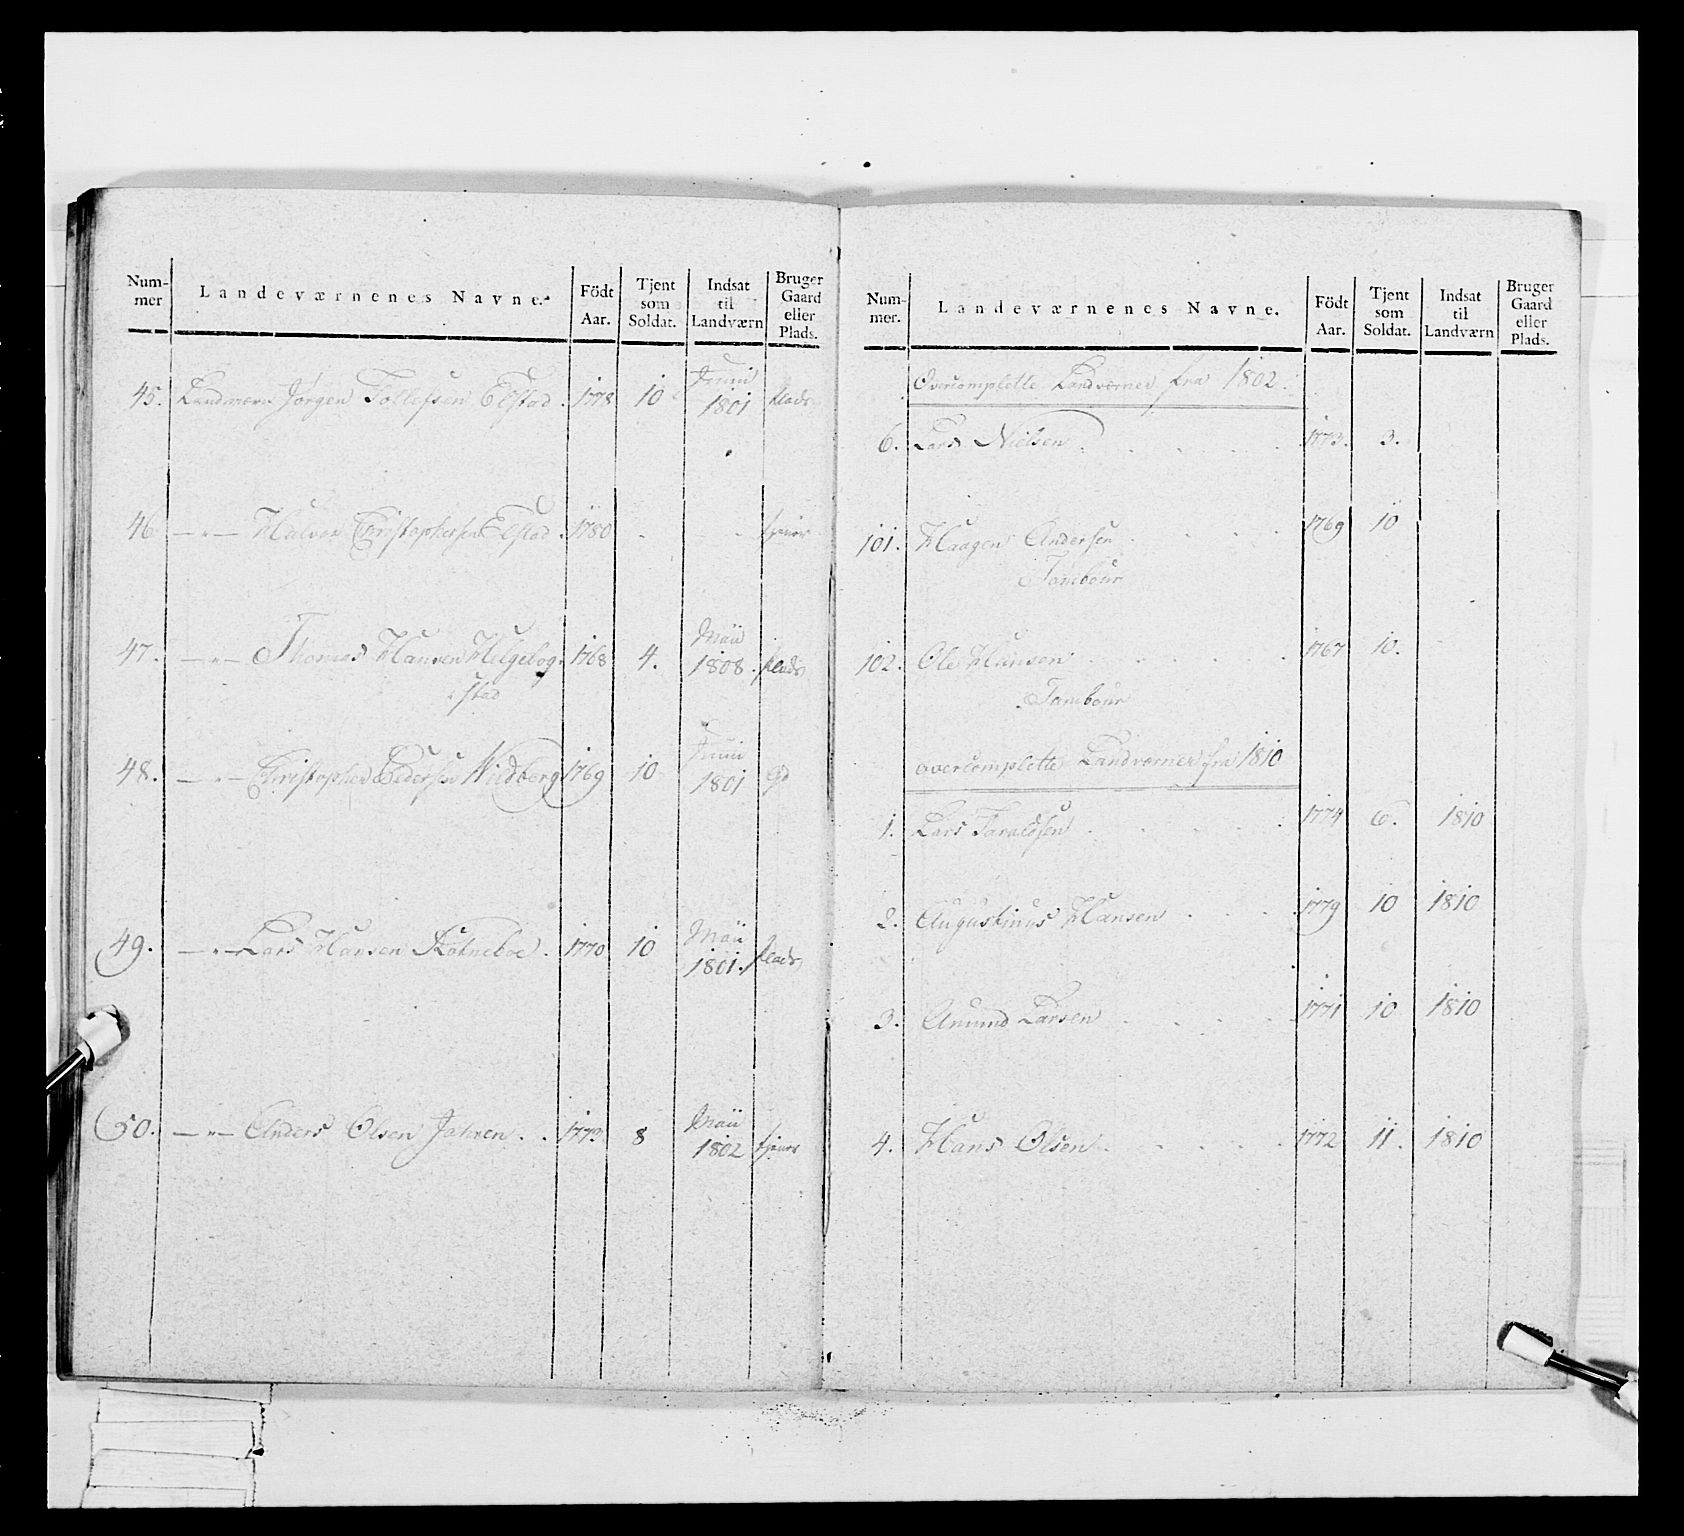 Num-
mer
Landeværnenes Navne.
Födt
Aar.
Tjent
som
Soldat.
Indsat
til
Landværn
Bruger
Gaard
eller
Plads.
45. Landværn Jørgen Tollefsen Elstad . 1778 10 Junii
1801 Plads
46 — " — Halvor Christophersen Elstad . 1780 . . tjener
47. — " — Thomas Hansen Helgebog- 1768 4. Maii
1808. plads
stad
48. — " — Christopher Pedersen Windberg 1769 10 Junii
1801
49. — " — Lars Hansen 1770 10 Maii
1801. plads
50. — " — Anders Olsen Jahren . . 1773 8 Maii
1802 tjener
Num-
mer.
Landeværnenes Navne.
Födt
Aar.
Tjent
som
Soldat.
Indsat
til
Landværn
Bruger
Gaard
eller
Plads.
Overcomplette Landværner fra 1802.
6. Lars Nielsen . . . . . 1773. 3.
101. Haagen Andersen . . . . 1769 10
Tambour
102. Ole Hansen . . . . . 1767 10.
Tambour
overcomplette Landværner fra 1810
1. Lars Taraldsen . . . . . 1774 6. 1810
2. Augustinus Hansen . . . 1779 10 1810
3. Amund Larsen . . . . 1771 10 1810
4. Hans Olsen . . . . . 1772 11. 1810